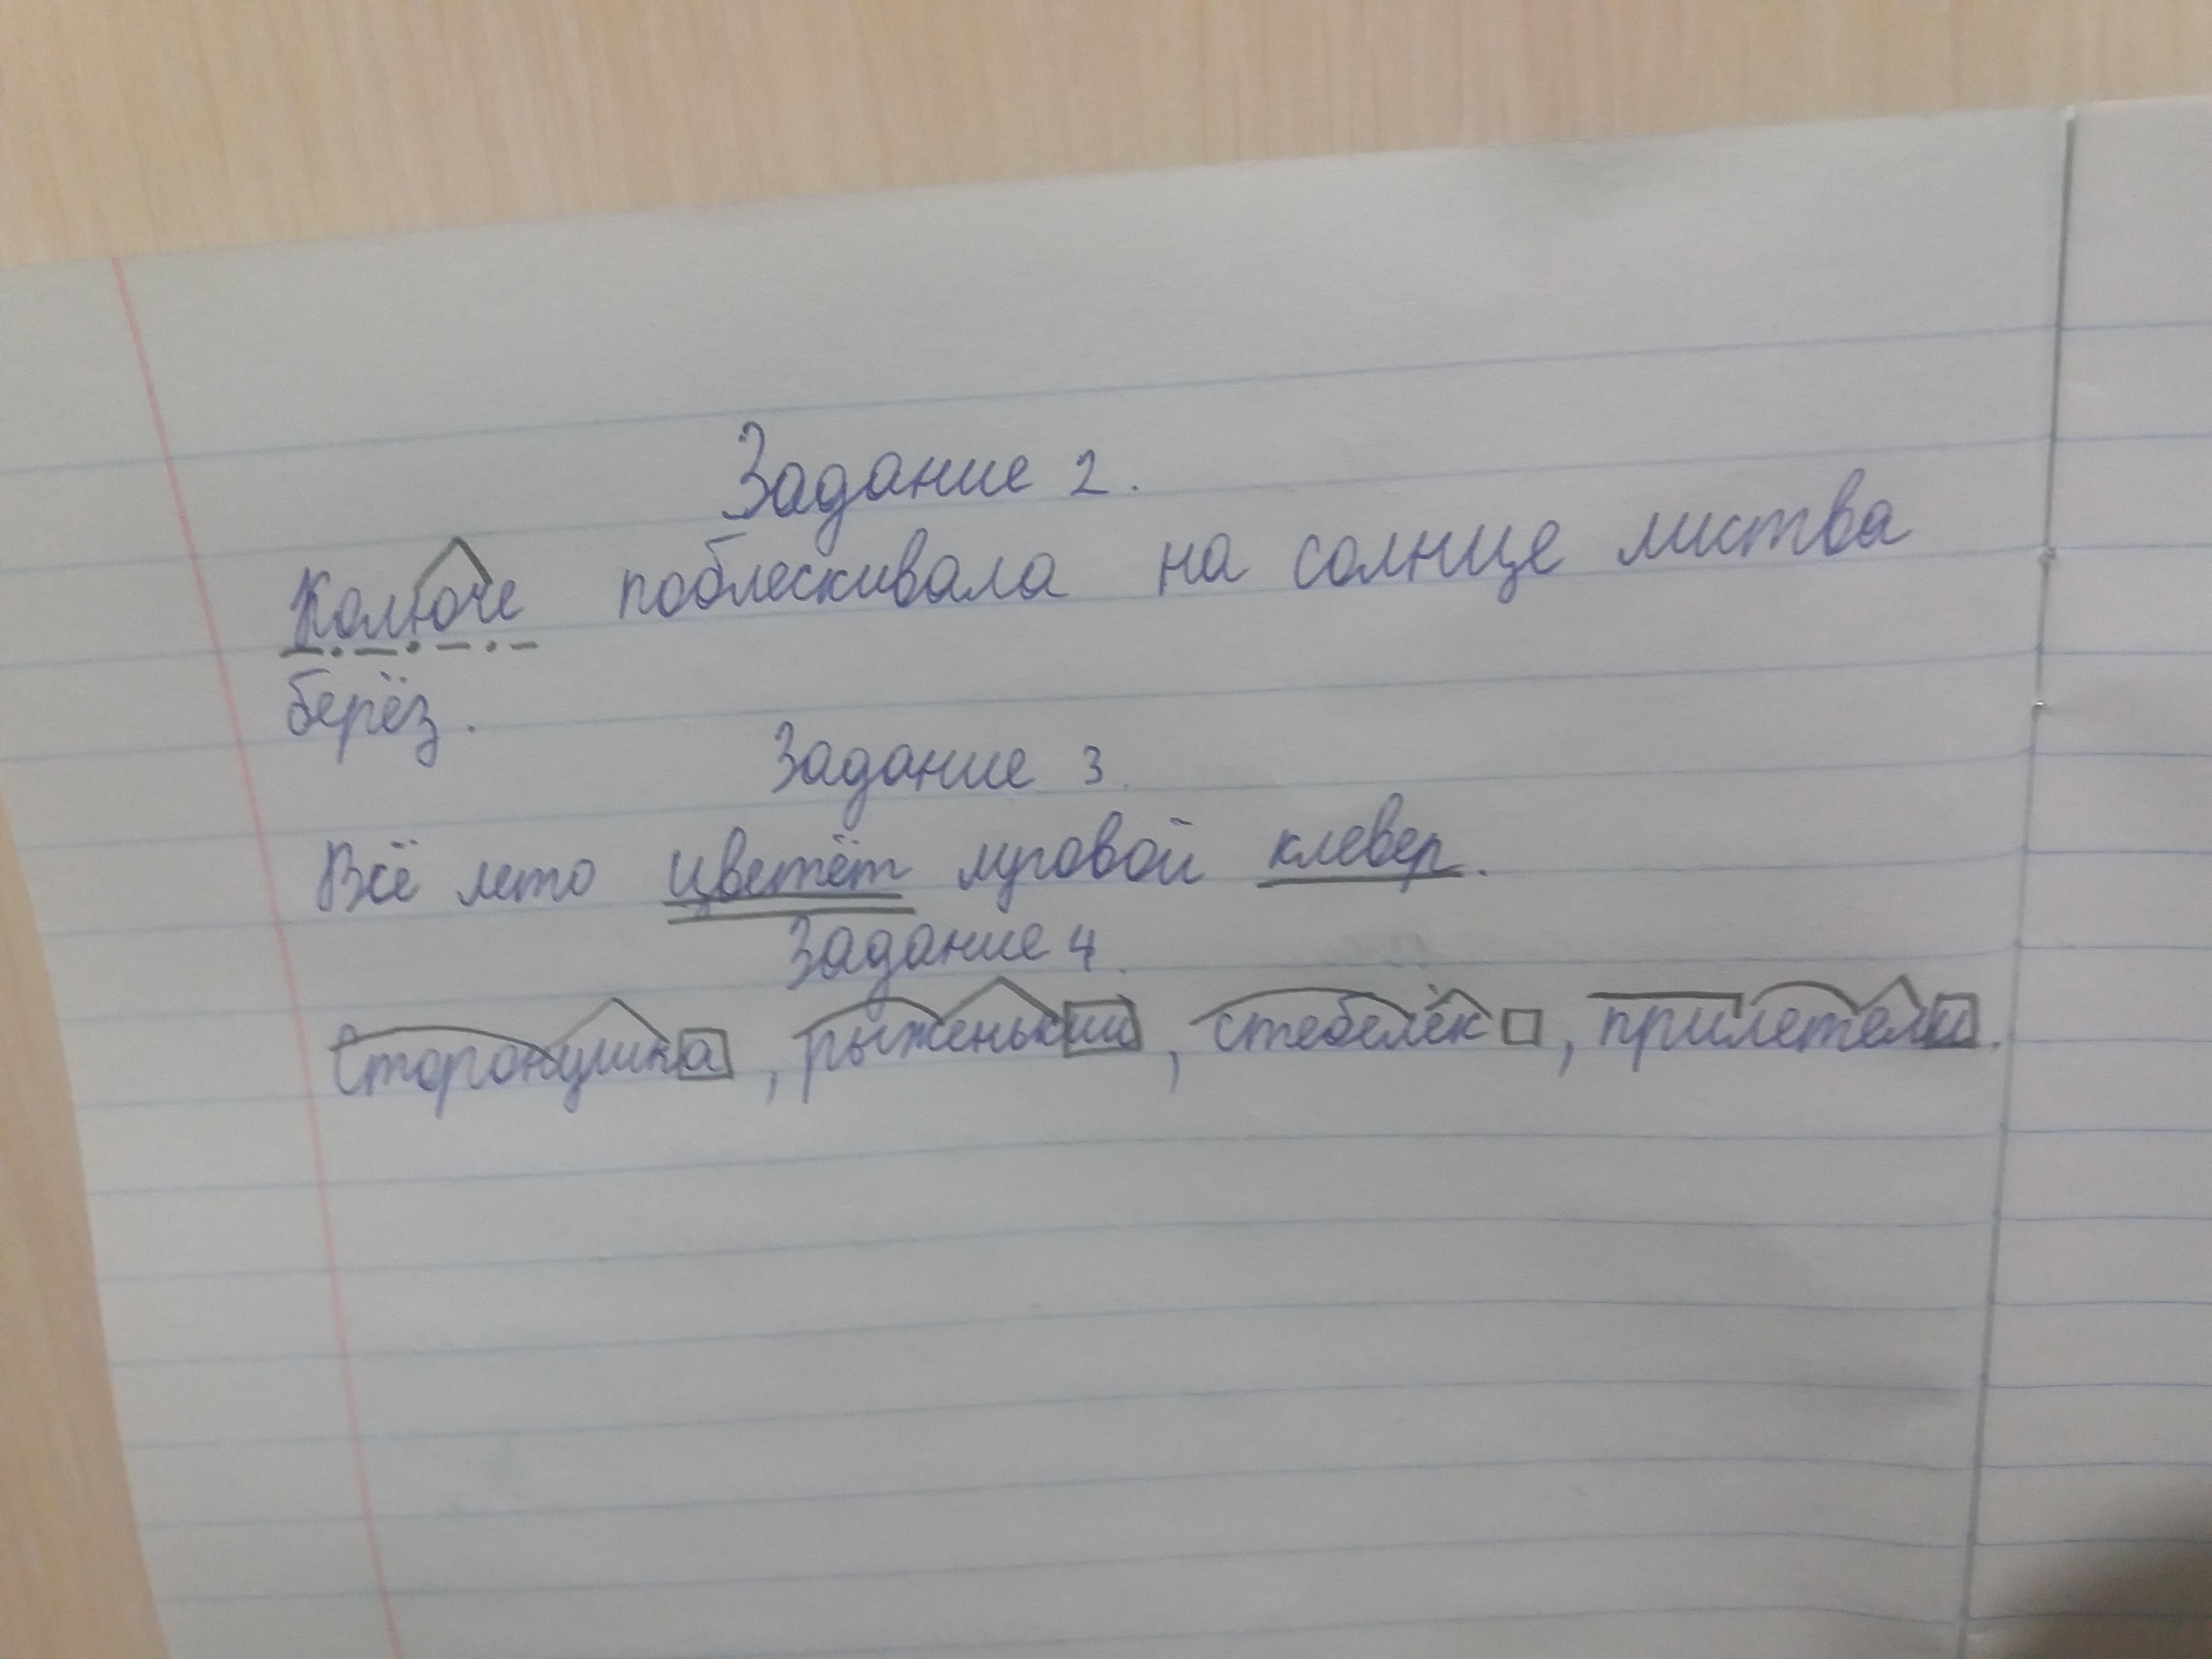 Задание 2.
Колюче поблескивала на солнце листва
берёз.
Задание 3.
Всё лето цветёт луговой клевер.
Задание 4.
Сторонушка, рыженький, стебелёк, прилетели.